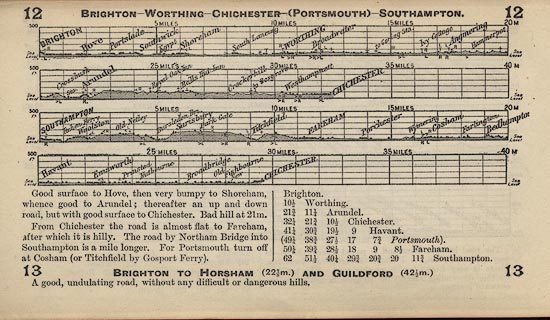 12 BRIGHTON–WORTHING–CHICHESTER–(PORTSMOUTH)–SOUTHAMPTON. 12
500 5 MILES 10 MILES 15 MILES 20 M
BRIGHTON Hove Portslade Southwick Shoreham South Lancing WORTHING Broadwater Angmering Hammerpot
Sea Level
500 25 MILES 30 MILES 35 MILES 40 M
Crossbush Arundel Royal Oak Inn Balls Hut Inn Crockerhill Westhampnett CHICHESTER
Sea Level
500 5 MILES 10 MILES 15 MILES 20 M
SOUTHAMPTON Woolston Old Netley Sarisbury Park Gate Titchfield FAREHAM Porchester Wymering Cosham Farlington Bedhampton
Sea Level
500 25 MILES 30 MILES 35 MILES 40 M
Havant Emsworth Prinsted Nutbourne Broadbridge Old Fishbourne CHICHESTER
Sea Level
Good surface to Hove, then very bumpy to Shoreham,
whence good to Arundel; thereafter an up and down
road, but with good surface to Chichester. Bad hill at 21m.
From Chichester the road is almost flat to Fareham,
after which it is hilly. The road by Northam Bridge into
Southampton is a mile longer. For Portsmouth turn off
at Cosham (or Titchfield by Gosport Ferry).
Brighton.
10½ Worthing.
21¾ 11¼ Arundel.
32½ 21¾ 10½ Chichester.
41½ 30¾ 19½ 9 Havant.
(49¼ 38¾ 27½ 17 7¾ Portsmouth).
50¼ 39¾ 28½ 18 9 8½ Fareham.
62 51½ 40¼ 29¾ 20¾ 20 11¾ Southampton.
13 BRIGHTON TO HORSHAM (22¾m.) AND GUILDFORD (42½m.) 13
A good, undulating road, without any difficult or dangerous hills.